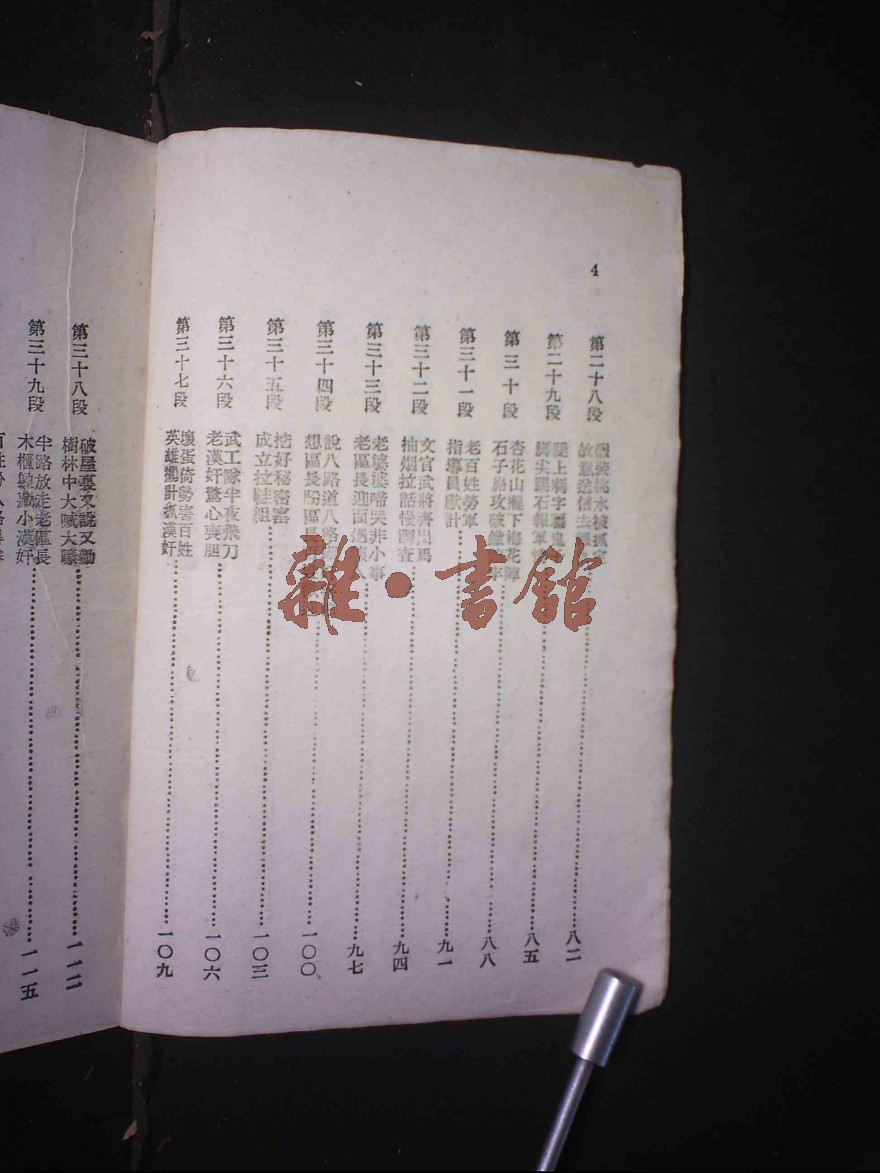 4
第二十八段
假裝挑水被抓
故意送信去
八二
第二十九段
腿上刺字
脚尖踢石報軍
八五
第三十段
杏花山擺下梅花陣
石子崗攻破
八八
第三十一段
老百姓勞軍
指導員獻計
九一
第三十二段
文官武將齊出馬
抽烟拉話慢調查
九四
第三十三段
老婆婆啼哭非小事
老區長迎面遇
九七
第三十四段
說八路道八路
想區長盼區長
一〇〇
第三十五段
挖好秘密窖
成立拉鞋組
一〇三
第三十六段
武工隊半夜飛刀
老漢奸驚心喪胆
一〇六
第三十七段
壞蛋倚勢害百姓
英雄獻計抓漢奸
一〇九
第三十八段
破屋裏又說又勸
樹林中大喊大嚷
一一二
第三十九段
半路放走老區長
木櫃躲藏小漢奸
一一五
雜·書館